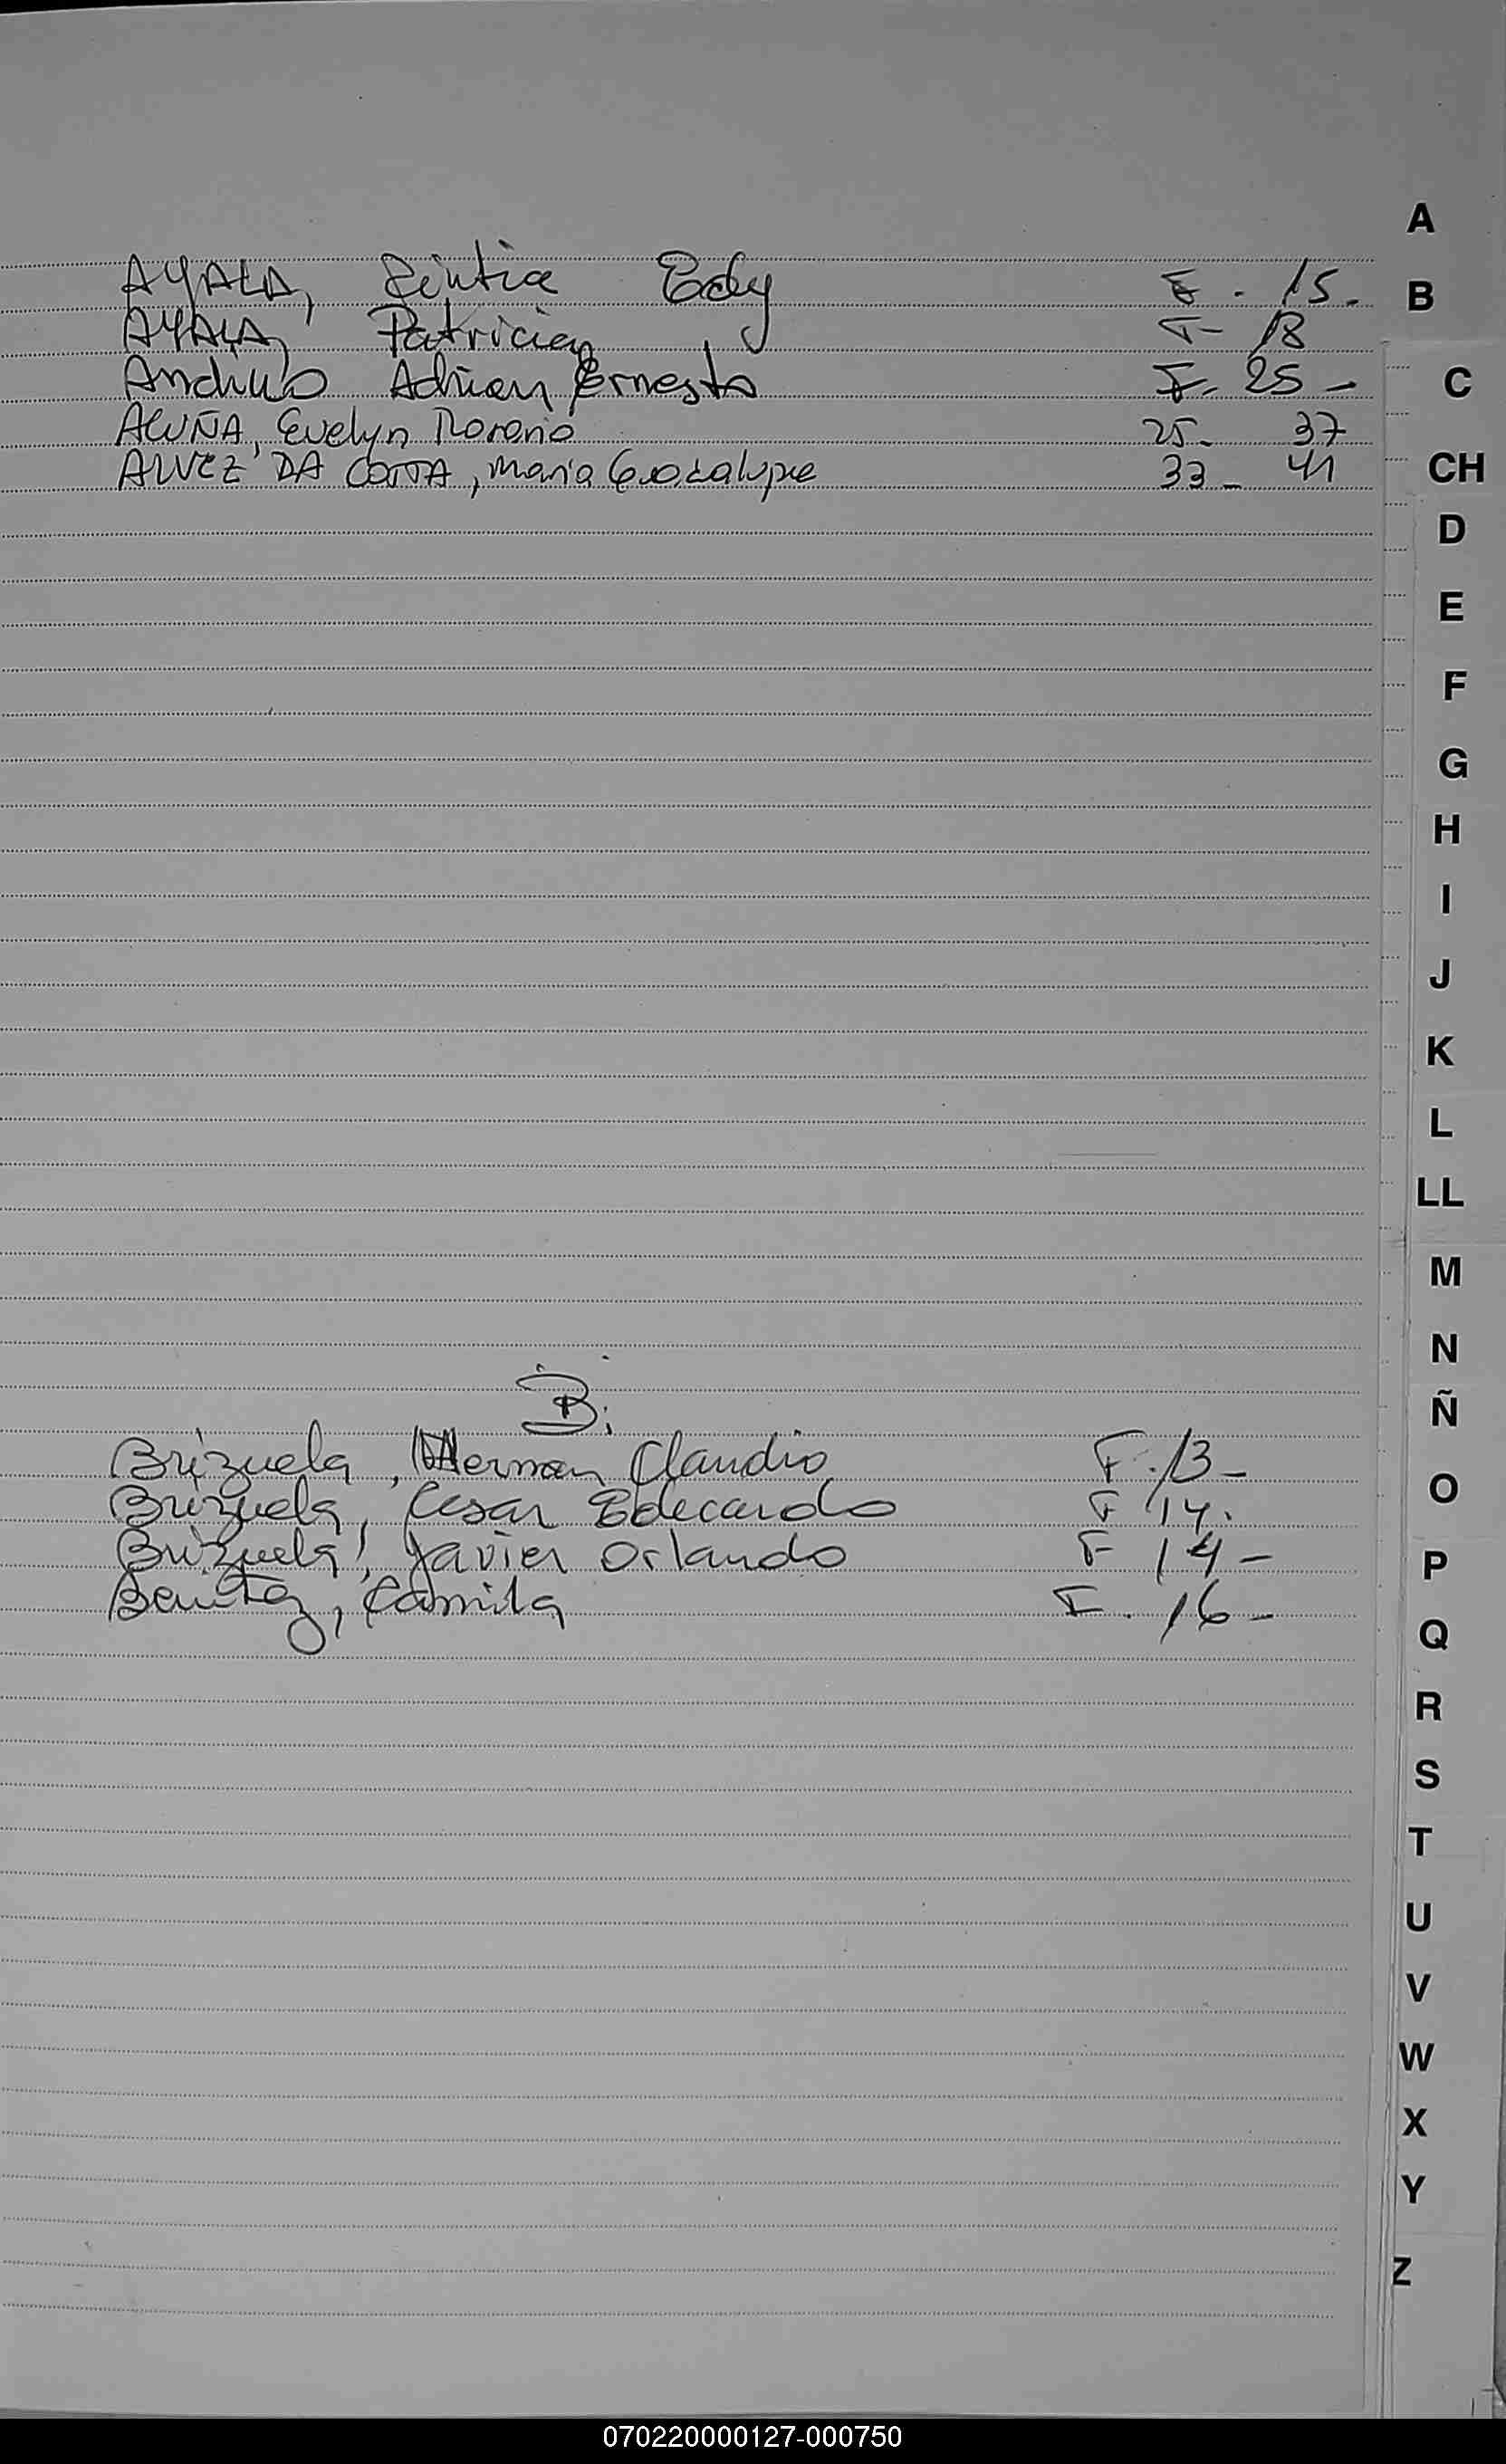 AYALA, Zintia Edy F. 15.
AYALA, Patricia F- 18
Adrian Ernesto F. 25 -
ACUÑA, Evelyn Rorano 25- 37
ALVEZ DA COSTA, Maria Guadalupe 33- 41
B.
Brizuela, Herman Claudio F. 13-
Brizuela, Cesar Edecardo F 14.
Brizuela, Javier Orlando F 14-
Benitez, Camila F. 16-
A
B
C
CH
D
E
F
G
H
I
J
K
L
LL
M
N
Ñ
O
P
Q
R
S
T
U
V
W
X
Y
Z
070220000127-000750